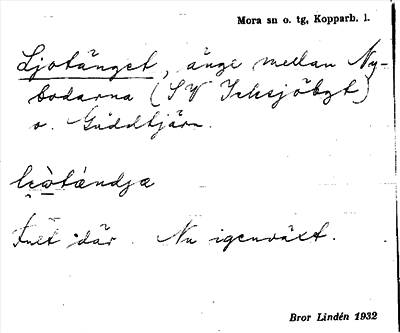 Mora sn o. tg, Kopparb. l.
Ljotänget, änge mellan Ny-
bodarna (SV Icksjöbgt)
o. Gäddtjärn.
Fult där. Nu igenväxt.
Bror Lindén 1932